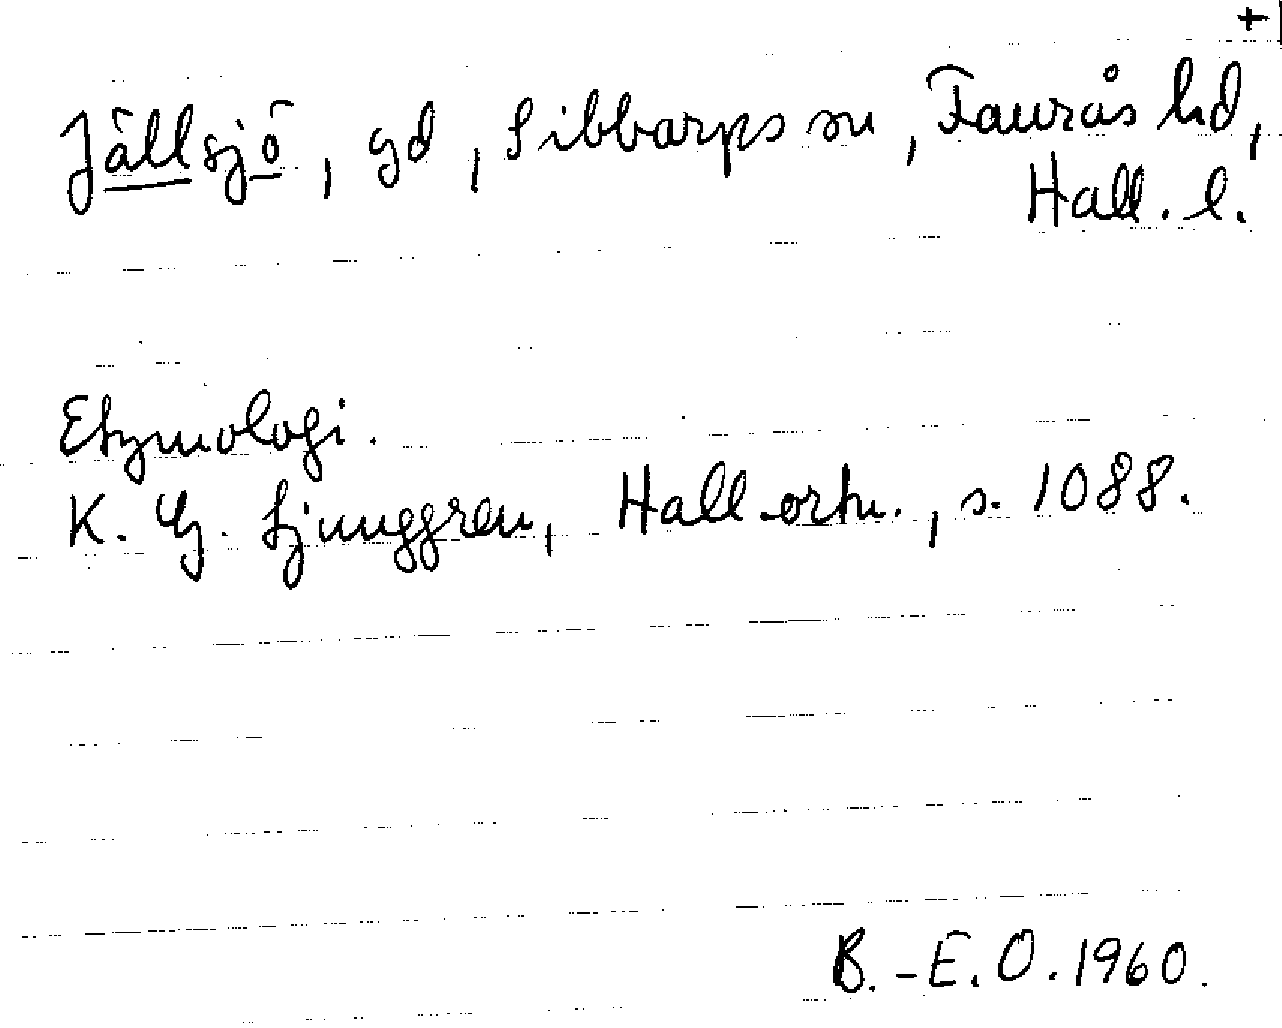 +
Jällsjö, gd, Sibbarps sn, Faurås hd,
Hall. l.
Etymologi.
K. G. Ljunggren, Hall. ortn., s. 1088.
B.-E. O. 1960.